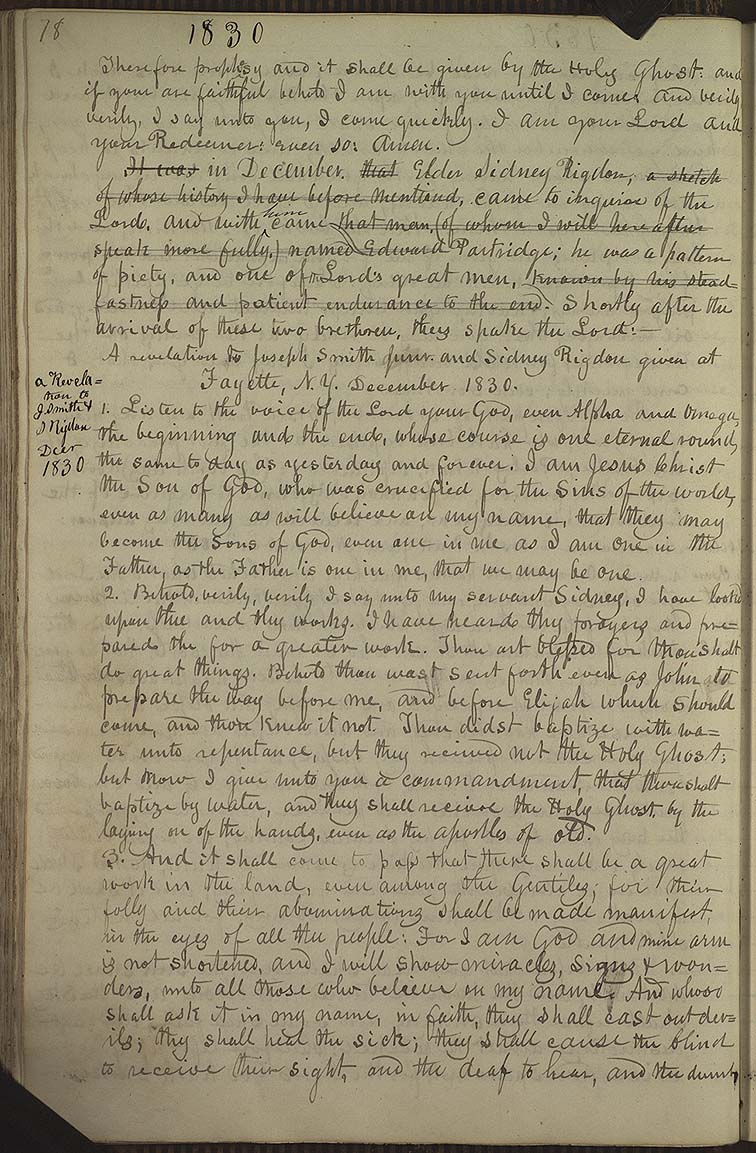 78
1830
Therefore prophesy and it shall be given by the Holy Ghost: and
if your are faithful behold I am with you until I come. And verily
verily, I say unto you, I come quickly. I am your Lord and
your Redeemer: even so: Amen.
It was in December. that Elder Sidney Rigdon; a sketch
of whose history I have before mentioned, came to inquire of the
Lord, and with him came that man, (of whom I will here after
speak more fully,) named Edward Partridge; he was a pattern
of piety, and one of the Lord's great men, known by his stead=
fastness and patient endurance to the end. Shortly after the
arrival of these two brethren, thus spake the Lord:—
A revelation to Joseph Smith Junr. and Sidney Rigdon given at
Fayette, N. Y. December 1830.
a Revela=
tion to
J. Smith &
S Rigdon
Decr
1830
1. Listen to the voice of the Lord your God, even Alpha and Omega,
the beginning and the end, whose course is one eternal round,
the same to day as yesterday and forever. I am Jesus Christ
the Son of God, who was crucified for the Sins of the world,
even as many as will believe on my name, that they may
become the Sons of God, even one in me as I am one in the
Father, as the Father is one in me, that we may be one.
2. Behold, verily, verily I say unto my servant Sidney, I have looked
upon thee and thy works. I have heard thy prayers and pre=
pared the for a greater work. Thou art blessed for thou shalt
do great things. Behold thou wast sent forth even as John to
prepare the way before me, and before Elijah which should
come, and thou knew it not. Thou didst baptize with wa=
ter unto repentance, but they received not the Holy Ghost;
but now I give unto you a commandment, that thou shalt
baptize by water, and they shall receive the Holy Ghost by the
laying on of the hands, even as the apostles of old.
3. And it shall come to pass that there shall be a great
work in the land, even among the Gentiles, for their
folly and their abominations shall be made manifest,
in the eyes of all the people: For I am God and mine arm
is not shortened, and I will show miracles, signs & won=
ders, unto all those who believe on my name. And whoso
shall ask it in my name, in faith, they shall cast out dev=
ils; they shall heal the sick; they shall cause the blind
to receive their sight, and the deaf to hear, and the dumb